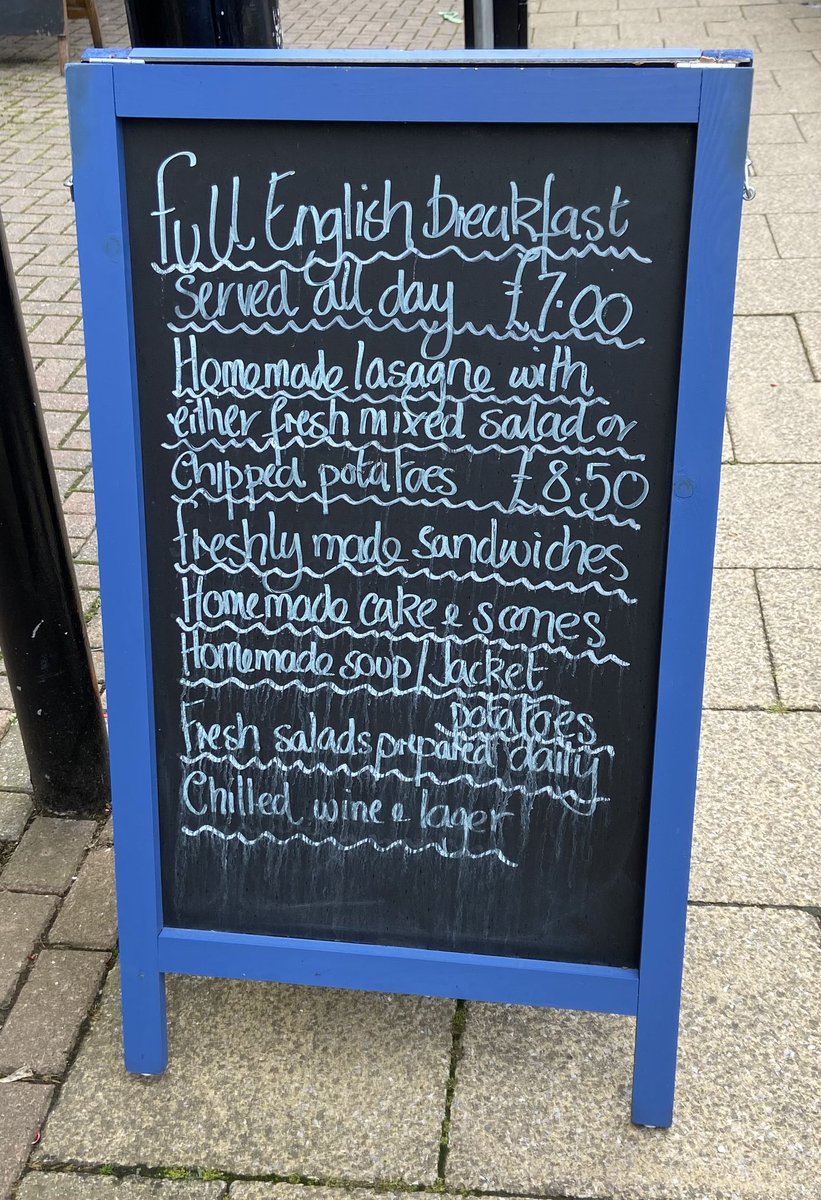 Full English breakfast
Served all day £7.00
Homemade lasagne with
either fresh mixed salad or
chipped potatoes £8.50
freshly made sandwiches
Homemade cake & scones
Homemade soup/Jacket
potatoes
Fresh salads prepared daily
Chilled wine & lager